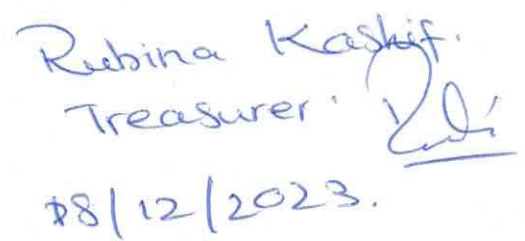 Rubina Kashif.
Treasurer.
18/12/2023.